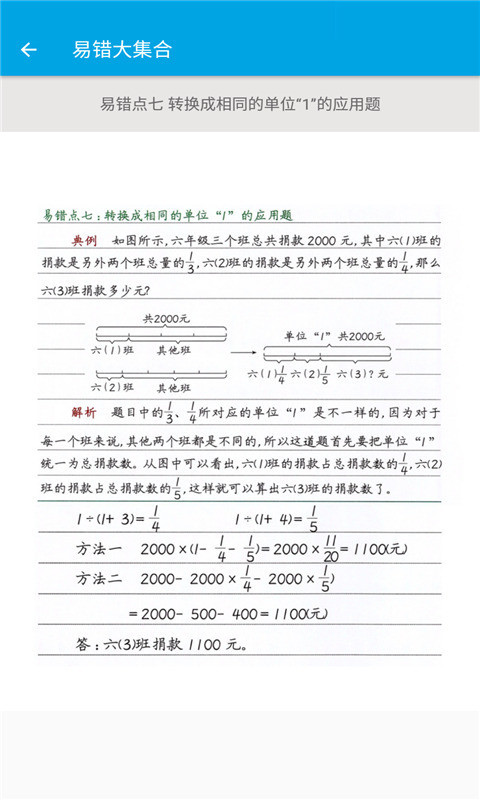 易错大集合
易错点七 转换成相同的单位“1”的应用题
易错点七:转换成相同的单位“1”的应用题
典例 如图所示,六年级三个班总共捐款2000元,其中六(1)班的
捐款是另外两个班总量的1/3,六(2)班的捐款是另外两个班总量的1/4,那么
六(3)班捐款多少元?
共2000元
六(1)班 其他班
六(2)班 其他班
单位“1”共2000元
六(1)1/4 六(2)1/5 六(3)?元
解析 题目中的1/3、1/4所对应的单位“1”是不一样的,因为对于
每一个班来说,其他两个班都是不同的,所以这道题首先要把单位“1”
统一为总捐款数。从图中可以看出,六(1)班的捐款占总捐款数的1/4,六(2)
班的捐款占总捐款数的1/5,这样就可以算出六(3)班的捐款数了。
1÷(1+3)=1/4 1÷(1+4)=1/5
方法一 2000×(1-1/4-1/5)=2000×11/20=1100(元)
方法二 2000-2000×1/4-2000×1/5)
=2000-500-400=1100(元)
答:六(3)班捐款1100元。